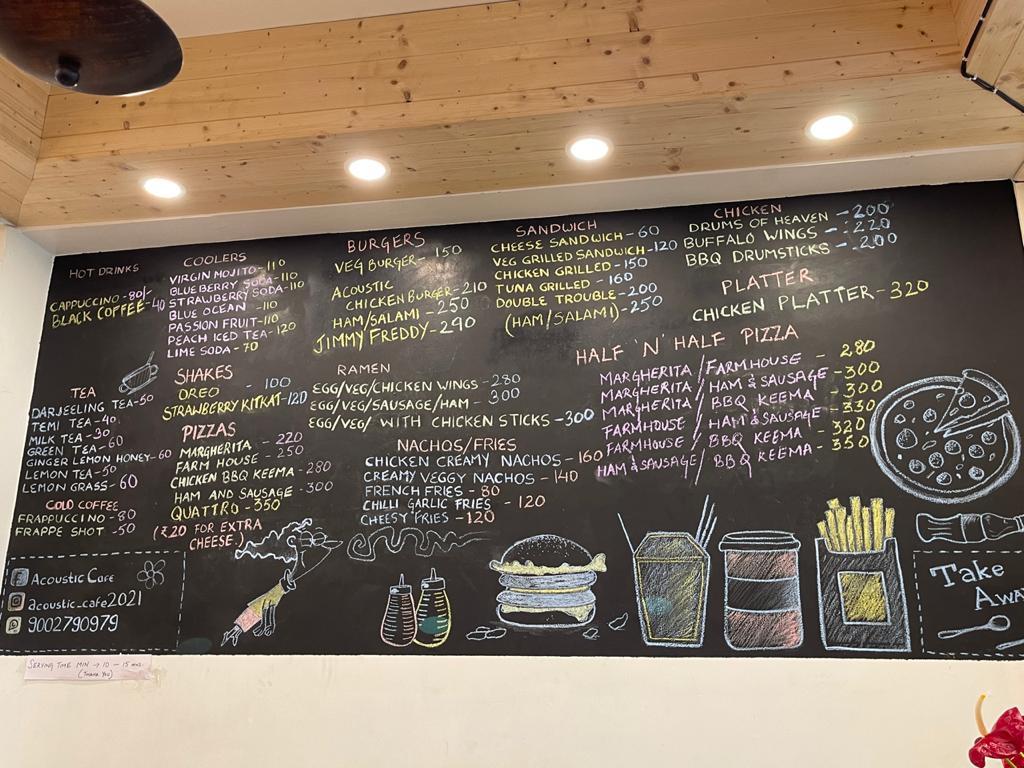 HOT DRINKS
CAPPUCCINO - 80/-
BLACK COFFEE - 40
TEA
DARJEELING TEA - 50
TEMI TEA - 40
MILK TEA - 30
GREEN TEA - 60
GINGER LEMON HONEY - 60
LEMON TEA - 50
LEMON GRASS - 60
COLD COFFEE
FRAPPUCCINO - 80
FRAPPE SHOT - 50
COOLERS
VIRGIN MOJITO - 110
BLUEBERRY SODA - 110
STRAWBERRY SODA - 110
BLUE OCEAN - 110
PASSION FRUIT - 110
PEACH ICED TEA - 120
LIME SODA - 70
SHAKES
OREO - 100
STRAWBERRY KITKAT - 120
PIZZAS
MARGHERITA - 220
FARM HOUSE - 250
CHICKEN BBQ KEEMA - 280
HAM AND SAUSAGE - 300
QUATTRO - 350
(₹20 FOR EXTRA
CHEESE.)
BURGERS
VEG BURGER - 150
ACOUSTIC
CHICKEN BURGER - 210
HAM/SALAMI - 250
JIMMY FREDDY - 290
RAMEN
EGG/VEG/CHICKEN WINGS - 280
EGG/VEG/SAUSAGE/HAM - 300
EGG/VEG/ WITH CHICKEN STICKS - 300
NACHOS/FRIES
CHICKEN CREAMY NACHOS - 160
CREAMY VEGGY NACHOS - 140
FRENCH FRIES - 80
CHILLI GARLIC FRIES - 120
CHEESY FRIES - 120
SANDWICH
CHEESE SANDWICH - 60
VEG GRILLED SANDWICH - 120
CHICKEN GRILLED - 150
TUNA GRILLED - 160
DOUBLE TROUBLE - 200
(HAM/SALAMI) - 250
CHICKEN
DRUMS OF HEAVEN - 200
BUFFALO WINGS - 220
BBQ DRUMSTICKS - 200
PLATTER
CHICKEN PLATTER - 320
HALF 'N' HALF PIZZA
MARGHERITA / FARMHOUSE - 280
MARGHERITA / HAM & SAUSAGE - 300
MARGHERITA / BBQ KEEMA - 300
FARMHOUSE / HAM & SAUSAGE - 330
FARMHOUSE / BBQ KEEMA - 320
HAM & SAUSAGE / BBQ KEEMA - 350
f ACOUSTIC CAFE
acoustic_cafe2021
9002790979
TAKE
AWAY
SERVING TIME MIN → 10 - 15 mns.
(THANK YOU)